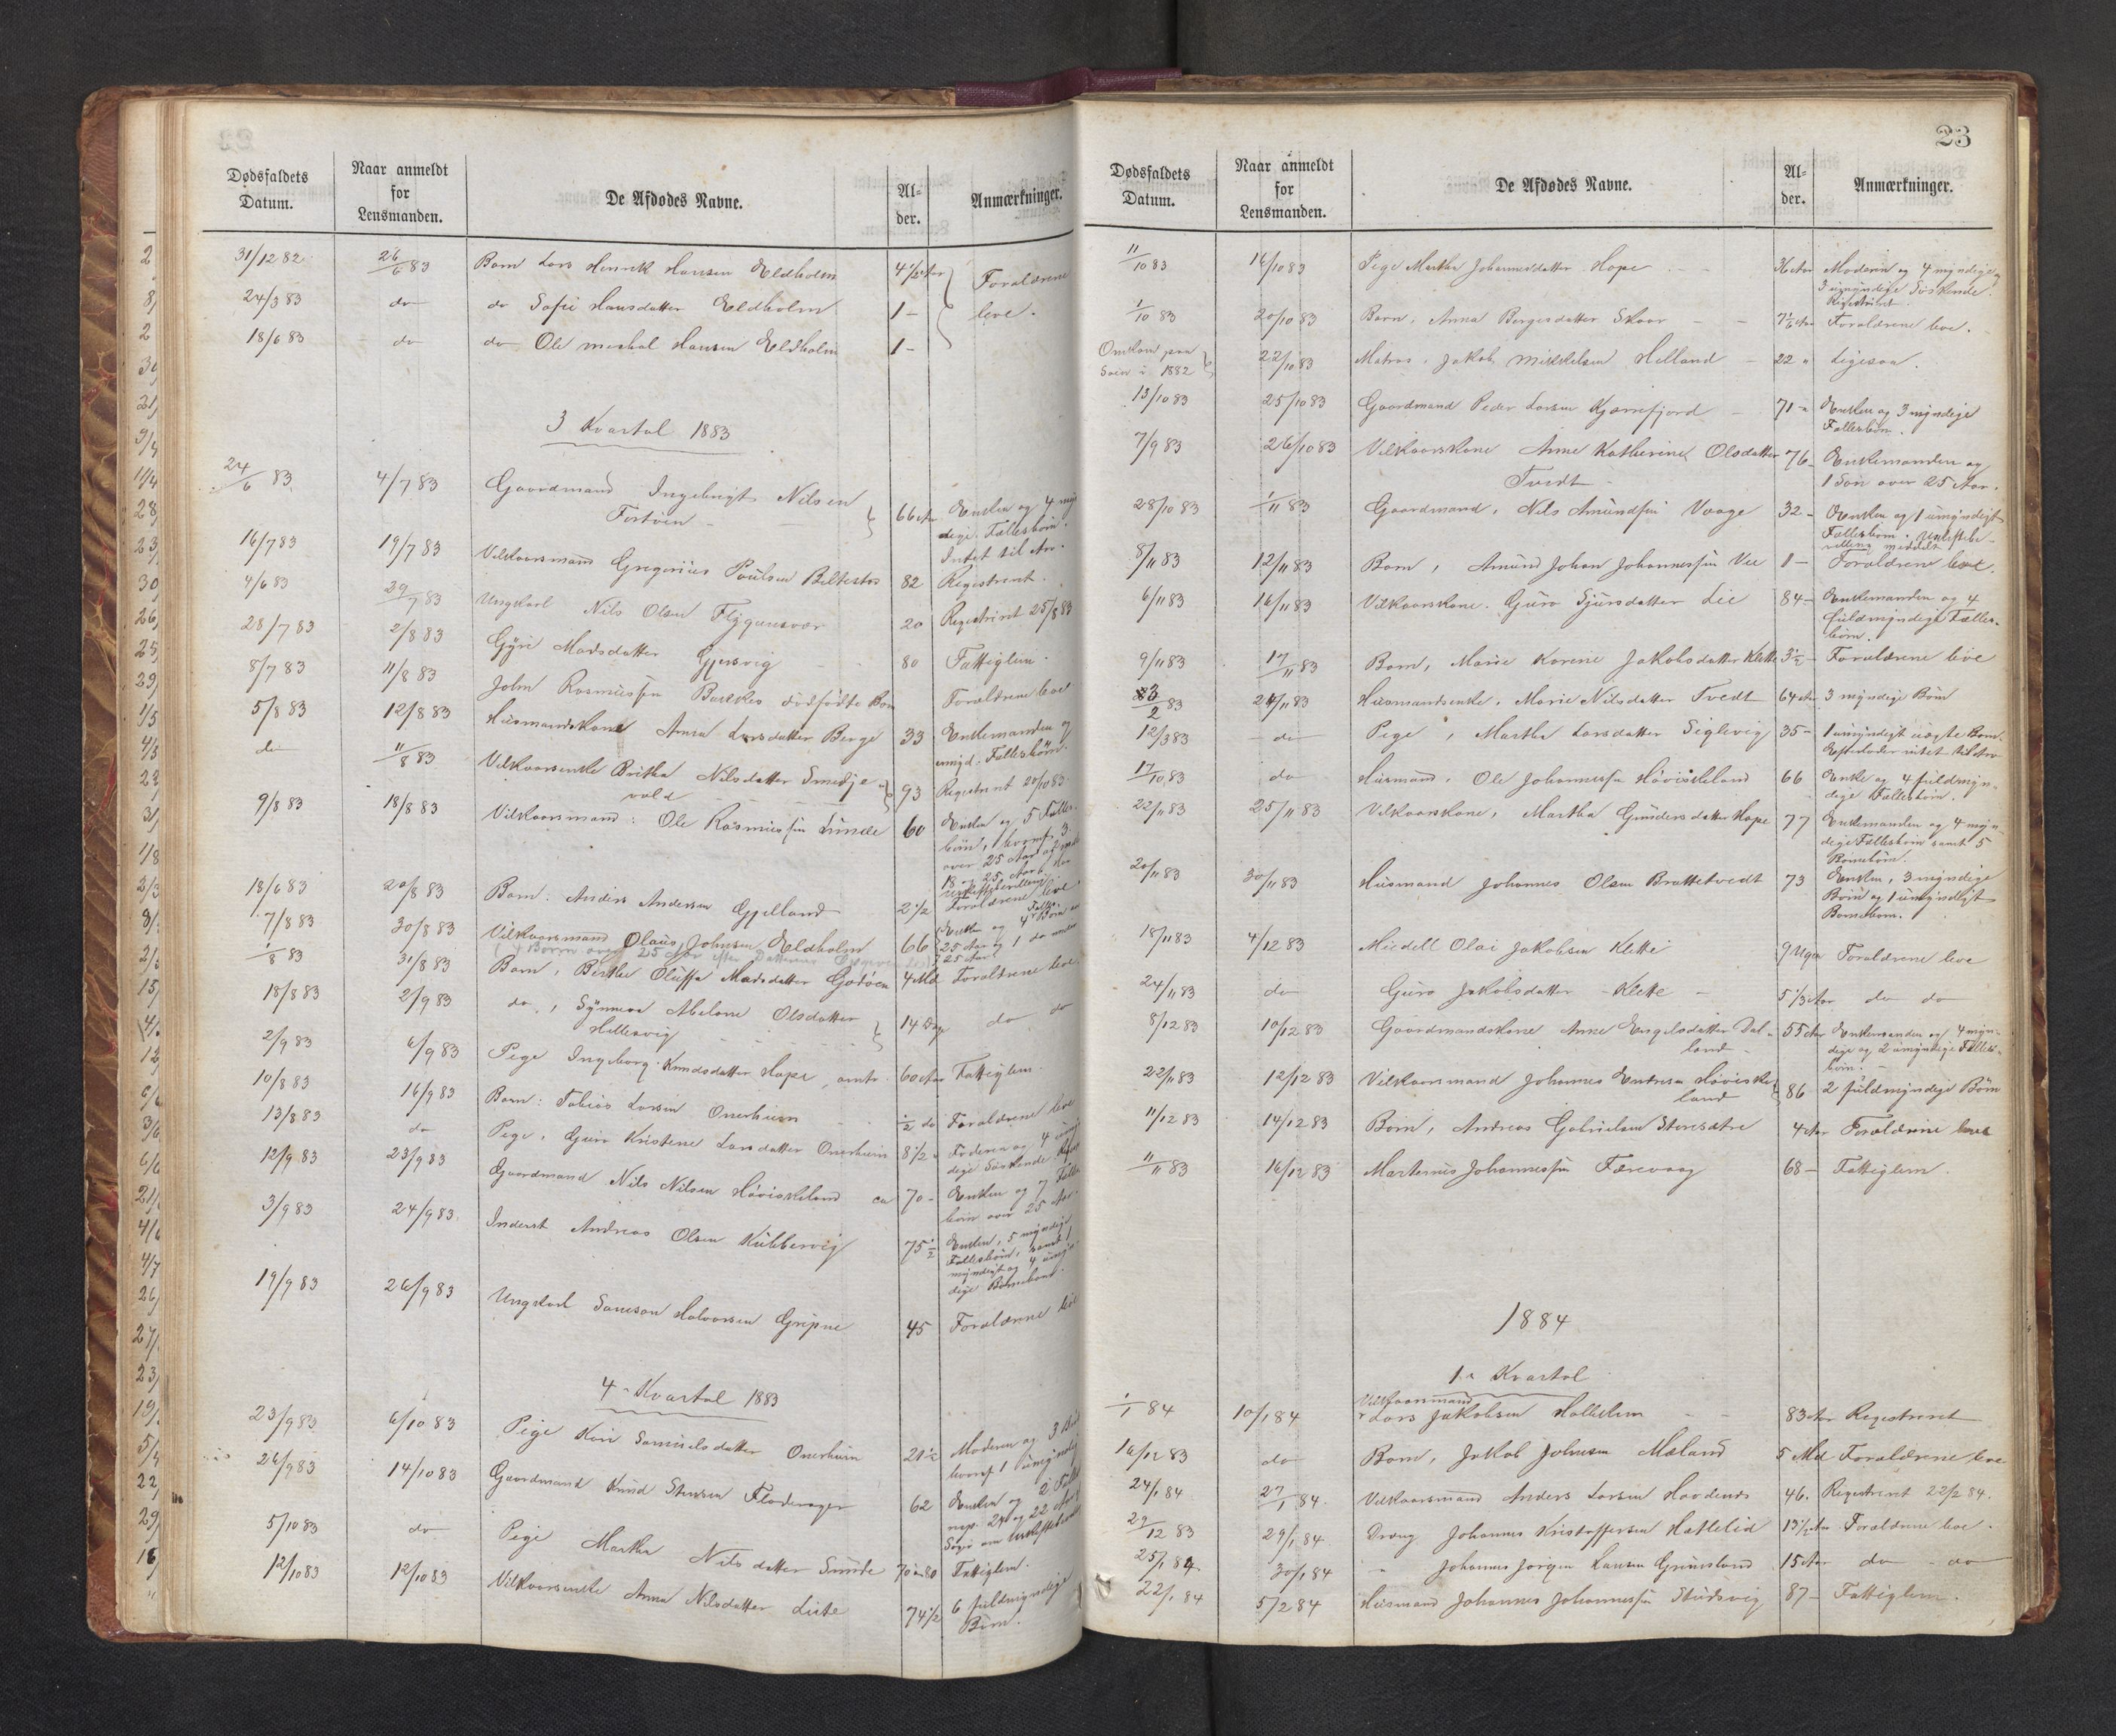 Dødsfaldets Datum. Naar anmeldt for Lensmanden. De Afdødes Navne. Al-der. Anmærkninger.
31/12 82 26/6 83 Barn Lars Henrik Hansen Eldholm 4 1/2 Aar Forældrene
24/3 83 do do Sofie Hansdatter Eldholm 1 - leve.
18/6 83 do do Ole Hansen Eldholm 1 -
3 Kvartal 1883
24/6 83 4/7 83 Gaardmand Ingebrigt Nilsen 66 Aar Enken og 4 myn
dige Fællesbørn.
16/7 83 19/7 83 Vilkaarsmand Gregorius Poulsen 82 Intet til Arv.
Registreret.
4/6 83 29/7 83 Ungkarl Nils Olsen 20 Registreret 25/8 83
28/7 83 2/8 83 Gyri Madsdatter Gjersvig 80 Fattiglem.
8/7 83 11/8 83 John Rasmussen dødfødte Barn Forældrene leve
5/8 83 12/8 83 Husmandskone Anna Larsdatter Berge 33 Enkemanden og
umyd. Fællesbørn.
do 11/8 83 Vilkaarsenke Britha Nilsdatter Smedje
vold 93 Registreret 20/10 83
9/8 83 18/8 83 Vilkaarsmand: Ole Rasmussen Sunde 60 Enken og 5 Fælles-
børn, hvoraf 3
over 25 Aar
18/6 83 20/8 83 Barn: Anders Andersen Gjelland 2 1/2 Forældrene leve
7/8 83 30/8 83 Vilkaarsmand Olaus Johnsen Eldholm 66 Enken og 4 Børn
25 Aar og 1 do under
25 Aar
1/8 83 31/8 83 Barn, Berthe Oluffa Madsdatter Godøen 4 Md Forældrene leve
18/8 83 2/9 83 do, Synneva Abelone Olsdatter
Hellesvig 14 Dg do do
2/9 83 6/9 83 Pige Ingeborg Knudsdatter Hope, omtr. 60 Aar Fattiglem.
10/8 83 16/9 83 Barn: Tobias Larsen Onerheim 1/2 do Forældrene leve
13/8 83 do Pige, Guro Kristene Larsdatter Onerheim 8 1/2 Faderen og 4 umyn
dige Søskende.
12/9 83 23/9 83 Gaardmand Nils Nilsen Høviskeland ca 70 - Enken og 7 Fælles
børn over 25 Aar.
3/9 83 24/9 83 Inderst Andreas Olsen Kubbervig 75 1/2 Enken, 5 myndige
Fællesbørn, samt 1
myndigt og 4 umyn-
dige Børnebørn.
19/9 83 26/9 83 Ungkarl Samson Halvorsen Gripne 45 Forældrene leve
4 - Kvartal 1883
23/9 83 6/10 83 Pige Kari Samuelsdatter Onerheim 21 1/2 Moderen og 3
hvoraf 1 umyndig
26/9 83 14/10 83 Gaardmand Knud Stensen 62 Enken og 2 Fælles
resp. 24 og 22 Aar
5/10 83 do Pige Martha Nilsdatter Sunde 70 a 80 Fattiglem.
12/10 83 12/10 83 Vilkaarsenke Anna Nilsdatter 74 1/2 6 fuldmyndige
Børn.
23
Dødsfaldets Datum. Naar anmeldt for Lensmanden. De Afdødes Navne. Al-der. Anmærkninger.
11/10 83 14/10 83 Pige Martha Johannesdatter Hope 36 Aar Moderen og 4 myndige
3 umyndige Søskende.
Registreret.
1/10 83 20/10 83 Barn, Anna Børgesdatter Skaar - - 7 1/2 Aar Forældrene leve.
Omkom paa
Søen i 1882 22/10 83 Matros, Jakob Mikkelsen Helland - 22 " Ligesaa.
13/10 83 25/10 83 Gaardmand Peder Larsen Kjærrefjord - 71 - Enken og 3 myndige
Fællesbørn.
7/9 83 26/10 83 Vilkaarskone Anne Katherine Olsdatter 76 - Enkemanden og
Tvedt - 1 Søn over 25 Aar.
28/10 83 1/11 83 Gaardmand, Nils Amundsen Vaage 32 - Enken og 1 umyndigt
Fællesbarn. Uskiftebe-
villing meddelt
8/11 83 12/11 83 Barn, Amund Johan Johannessen Vee 1 - Forældrene leve.
6/11 83 16/11 83 Vilkaarskone. Guro Sjursdatter Lie 84 - Enkemanden og 4
fuldmyndige Fælles-
børn.
9/11 83 17/11 83 Barn, Marie Karine Jakobsdatter Klette 3 1/2 - Forældrene leve
23/2 83 24/11 83 Husmandsenke, Marie Nilsdatter Tvedt 64 Aar 3 myndige Børn
12/3 83 do Pige, Martha Larsdatter Siglevig 35 - 1 umyndigt uægte Barn.
Efterlader intet til Arv
17/10 83 do Husmand, Ole Johannessen Høviskeland 66 Enke og 4 fuldmyn-
dige Fællesbørn.
22/11 83 25/11 83 Vilkaarskone, Martha Gundersdatter Hope 77 Enkemanden og 4 myn-
dige Fællesbørn samt 5
Børnebørn.
20/11 83 30/11 83 Husmand Johannes Olsen Brattetvedt 73 Enken, 3 myndige
Børn og 1 umyndigt
Barnebarn.
18/11 83 4/12 83 Miedell Olai Jakobsen Klette 9 Uger Forældrene leve
24/11 83 do Guro Jakobsdatter - Klette - 5 1/3 Aar do do
8/12 83 10/12 83 Gaardmandskone Anne Engelsdatter Dal-
land - 55 Aar Enkemanden og 4 myn-
dige og 2 umyndige Fælles-
børn. -
22/11 83 12/12 83 Vilkaarsmand Johannes Endresen Høviske
land 86 2 fuldmyndige Børn
11/12 83 14/12 83 Barn, Andreas Gabrielsen Storesætre 4 Aar Forældrene leve
11/11 83 16/12 83 Martinus Johannessen Færevaag 68 - Fattiglem.
1884
1. Kvartal
Vilkaarsmand
1/1 84 10/1 84 Lars Jakobsen - - 83 Aar Registreret
16/12 83 do Barn, Jakob Johnsen Mæland 5 Md Forældrene leve
24/1 84 27/1 84. Vilkaarsmand Anders Larsen 46. Registreret 22/2 84.
29/12 83 29/1 84 Dreng Johannes Kristoffersen Hattelid 13 1/2 Aar Forældrene leve.
25/1 84 30/1 84 " Johannes Jørgen Hansen Grimsland 15 Aar do - do
22/1 84 5/2 84 Husmand Johannes Johannessen Skudsvig 87 - Fattiglem.